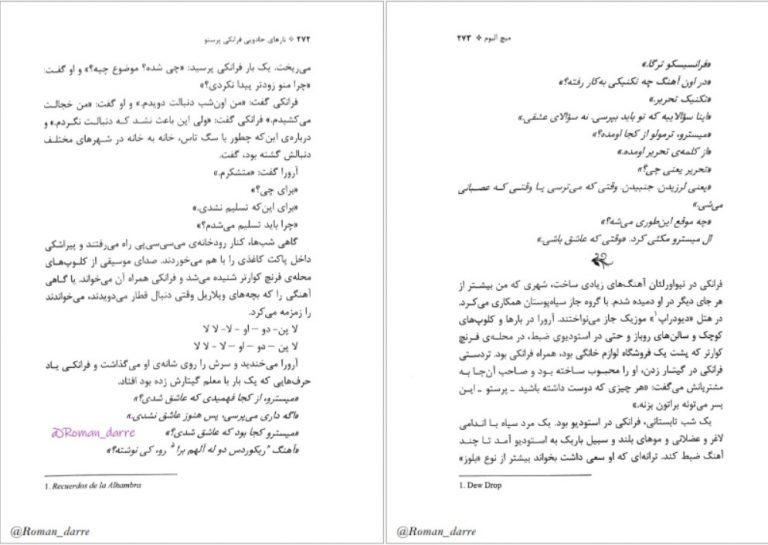 ۲۷۲ * تارهای جادویی فرانکی پرستو
می‌ریخت. یک بار فرانکی پرسید: «چی شده؟ موضوع چیه؟» و او گفت:
«چرا منو زودتر پیدا نکردی؟»
فرانکی گفت: «من اون‌شب دنبالت دویدم.» و او گفت: «من خجالت
می‌کشیدم.» فرانکی گفت: «ولی این باعث نشد که دنبالت نگردم.» و
درباره‌ی این‌که چطور با سگ تاس، خانه به خانه در شهرهای مختلف
دنبالش گشته بود، گفت.
آرورا گفت: «متشکرم.»
«برای چی؟»
«برای این‌که تسلیم نشدی.»
«چرا باید تسلیم می‌شدم؟»
گاهی شب‌ها، کنار رودخانه‌ی می‌سی‌سی‌پی راه می‌رفتند و پیراشکی
داخل پاکت کاغذی را با هم می‌خوردند. صدای موسیقی از کلوپ‌های
محله‌ی فرنچ کوارتر شنیده می‌شد و فرانکی همراه آن می‌خواند. یا گاهی
آهنگی را که بچه‌های ویلاریل وقتی دنبال قطار می‌دویدند، می‌خواندند
را زمزمه می‌کرد.
لا پن- دو – او - لا- لا لا
لا پن – دو – او – لا – لا لا
آرورا می‌خندید و سرش را روی شانه‌ی او می‌گذاشت و فرانکی یاد
حرف‌هایی که یک بار با معلم گیتارش زده بود افتاد.
«میسترو، از کجا فهمیدی که عاشق شدی؟»
«اگه داری می‌پرسی، پس هنوز عاشق نشدی.»
«میسترو کجا بود که عاشق شدی؟»
@Roman_darre
«آهنگ "ریکوردس دو له آلهم برا" ¹ رو، کی نوشته؟»
1. Recuerdos de la Alhambra
@Roman_darre
میچ آلبوم * ۲۷۳
«فرانسیسکو ترگا.»
«در اون آهنگ چه تکنیکی به‌کار رفته؟»
«تکنیک تحریر.»
«اینا سؤالاییه که تو باید بپرسی. نه سؤالای عشقی.»
«میسترو، ترمولو از کجا اومده؟»
«از کلمه‌ی تحریر اومده.»
«تحریر یعنی چی؟»
«یعنی لرزیدن. جنبیدن. وقتی که می‌ترسی یا وقتی که عصبانی
می‌شی.»
«چه موقع این‌طوری می‌شه؟»
ال میسترو مکثی کرد. «وقتی که عاشق باشی.»
فرانکی در نیواورلئان آهنگ‌های زیادی ساخت، شهری که من بیشتر از
هر جای دیگر در او دمیده شدم. با گروه جاز سیاه‌پوستان همکاری می‌کرد.
در هتل «دیودراپ¹» موزیک جاز می‌نواختند. آرورا در بارها و کلوپ‌های
کوچک و سالن‌های روباز و حتی در استودیوی ضبط، در محله‌ی فرنچ
کوارتر که پشت یک فروشگاه لوازم خانگی بود، همراه فرانکی بود. تردستی
فرانکی در گیتار زدن، او را محبوب ساخته بود و صاحب آن‌جا به
مشتریانش می‌گفت: «هر چیزی که دوست داشته باشید ـ پرستو ـ این
پسر می‌تونه براتون بزنه.»
یک شب تابستانی، فرانکی در استودیو بود. یک مرد سیاه با اندامی
لاغر و عضلانی و موهای بلند و سبیل باریک به استودیو آمد تا چند
آهنگ ضبط کند. ترانه‌ای که او سعی داشت بخواند بیشتر از نوع «بلوز»
1. Dew Drop
@Roman_darre